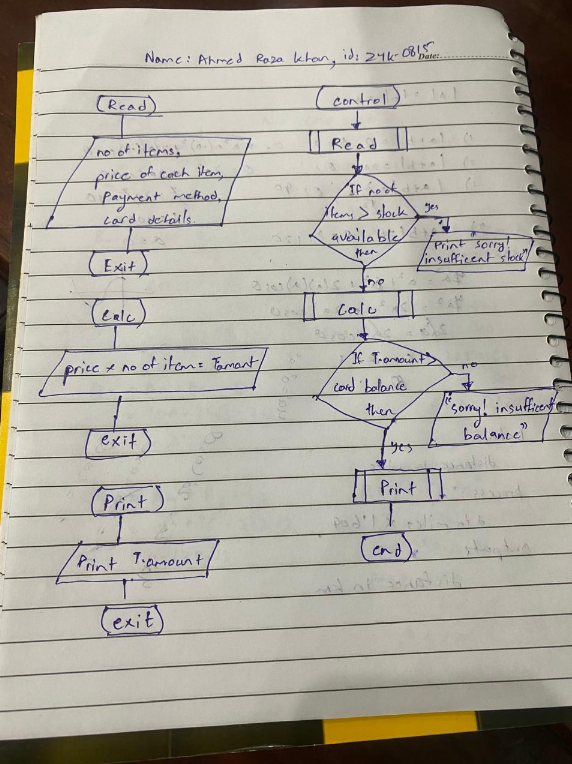 Name: Ahmed Raza Khan, id: 24k-0815
Date:
Read
no of items,
price of each item,
Payment method,
card details.
Exit
Calc
price × no of item = T.amant
exit
Print
Print T.amount
exit
control
Read
If no of
items > stock
available
then
yes
Print "sorry!
insufficent stock"
no
Calc
If T.amount >
card balance
then
no
"sorry! insufficent
balance!"
yes
Print
end
distance in km